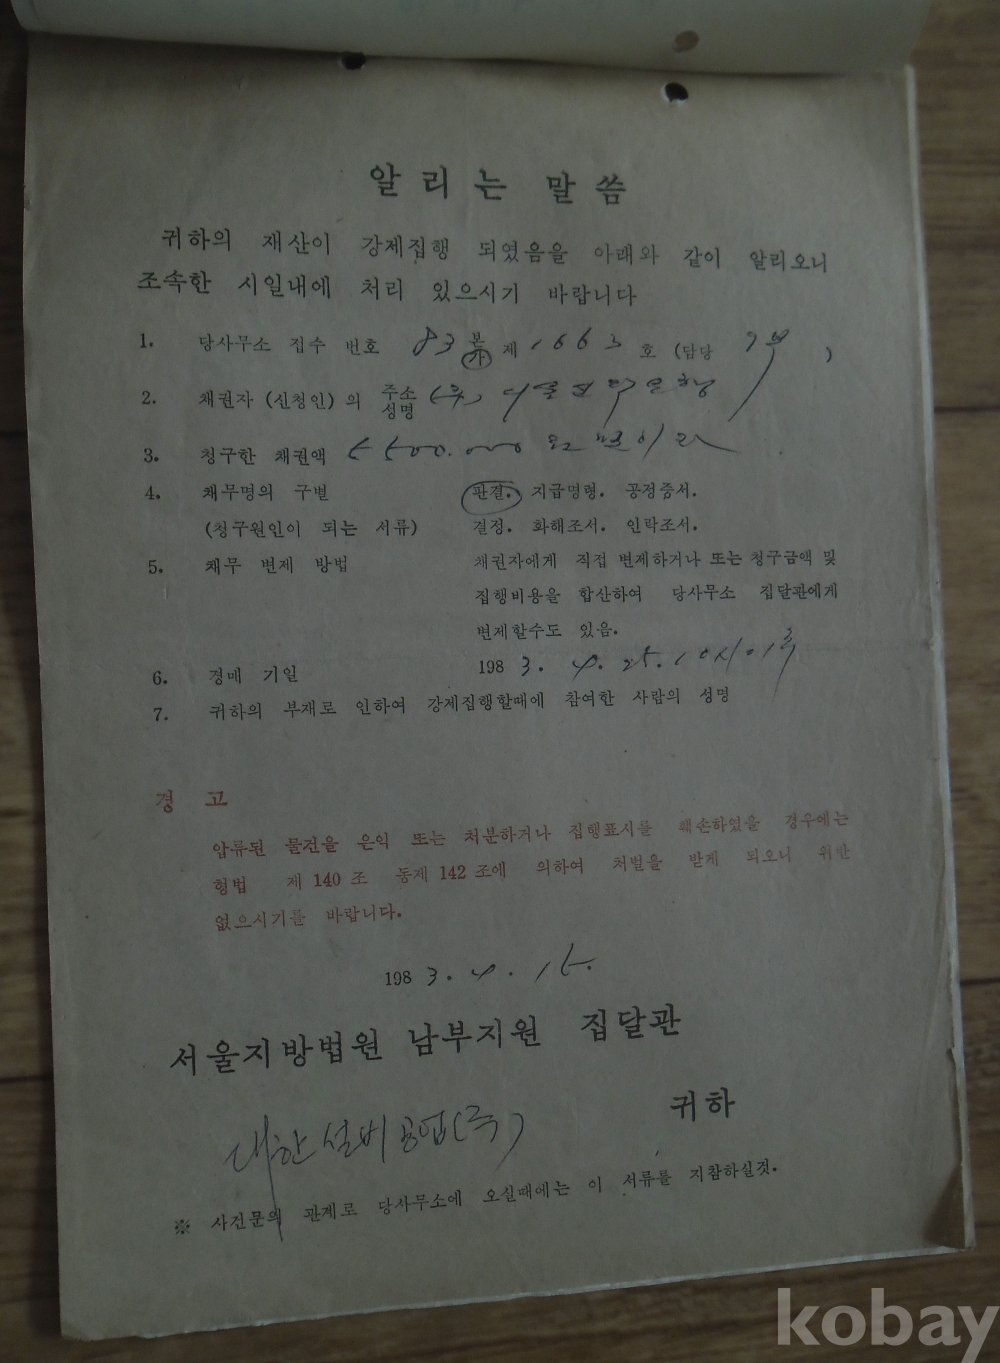 알리는 말씀
귀하의 재산이 강제집행 되였음을 아래와 같이 알리오니
조속한 시일내에 처리 있으시기 바랍니다
1. 당사무소 접수 번호 83 본 가 제 1663 호 (담당 부)
2. 채권자 (신청인) 의 주소 성명 (주) 은행
3. 청구한 채권액
4. 채무명의 구별 판결. 지급명령. 공정증서.
(청구원인이 되는 서류) 결정. 화해조서. 인락조서.
5. 채무 변제 방법 채권자에게 직접 변제하거나 또는 청구금액 및
집행비용을 합산하여 당사무소 집달관에게
변제할수도 있음.
6. 경매 기일 1983. 4. 25. 10시
7. 귀하의 부재로 인하여 강제집행할때에 참여한 사람의 성명
경 고
압류된 물건을 은익 또는 처분하거나 집행표시를 훼손하였을 경우에는
형법 제 140 조 동제 142 조에 의하여 처벌을 받게 되오니 위반
없으시기를 바랍니다.
1983. 4. 15.
서울지방법원 남부지원 집달관
대한설비공업(주) 귀하
※ 사건문의 관계로 당사무소에 오실때에는 이 서류를 지참하실것.
kobay